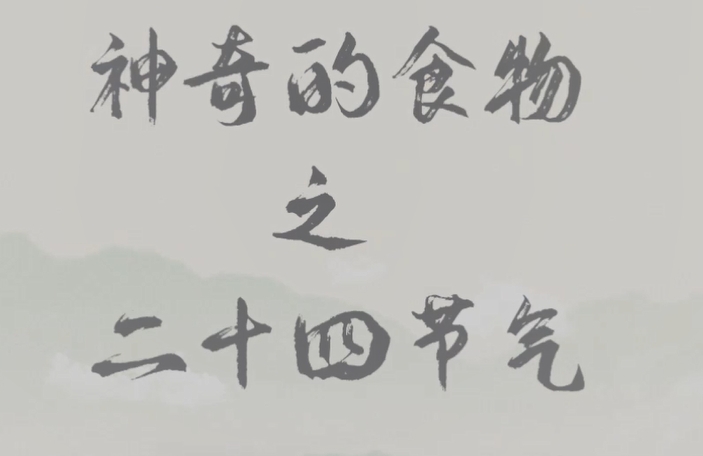 神奇的食物
之
二十四节气